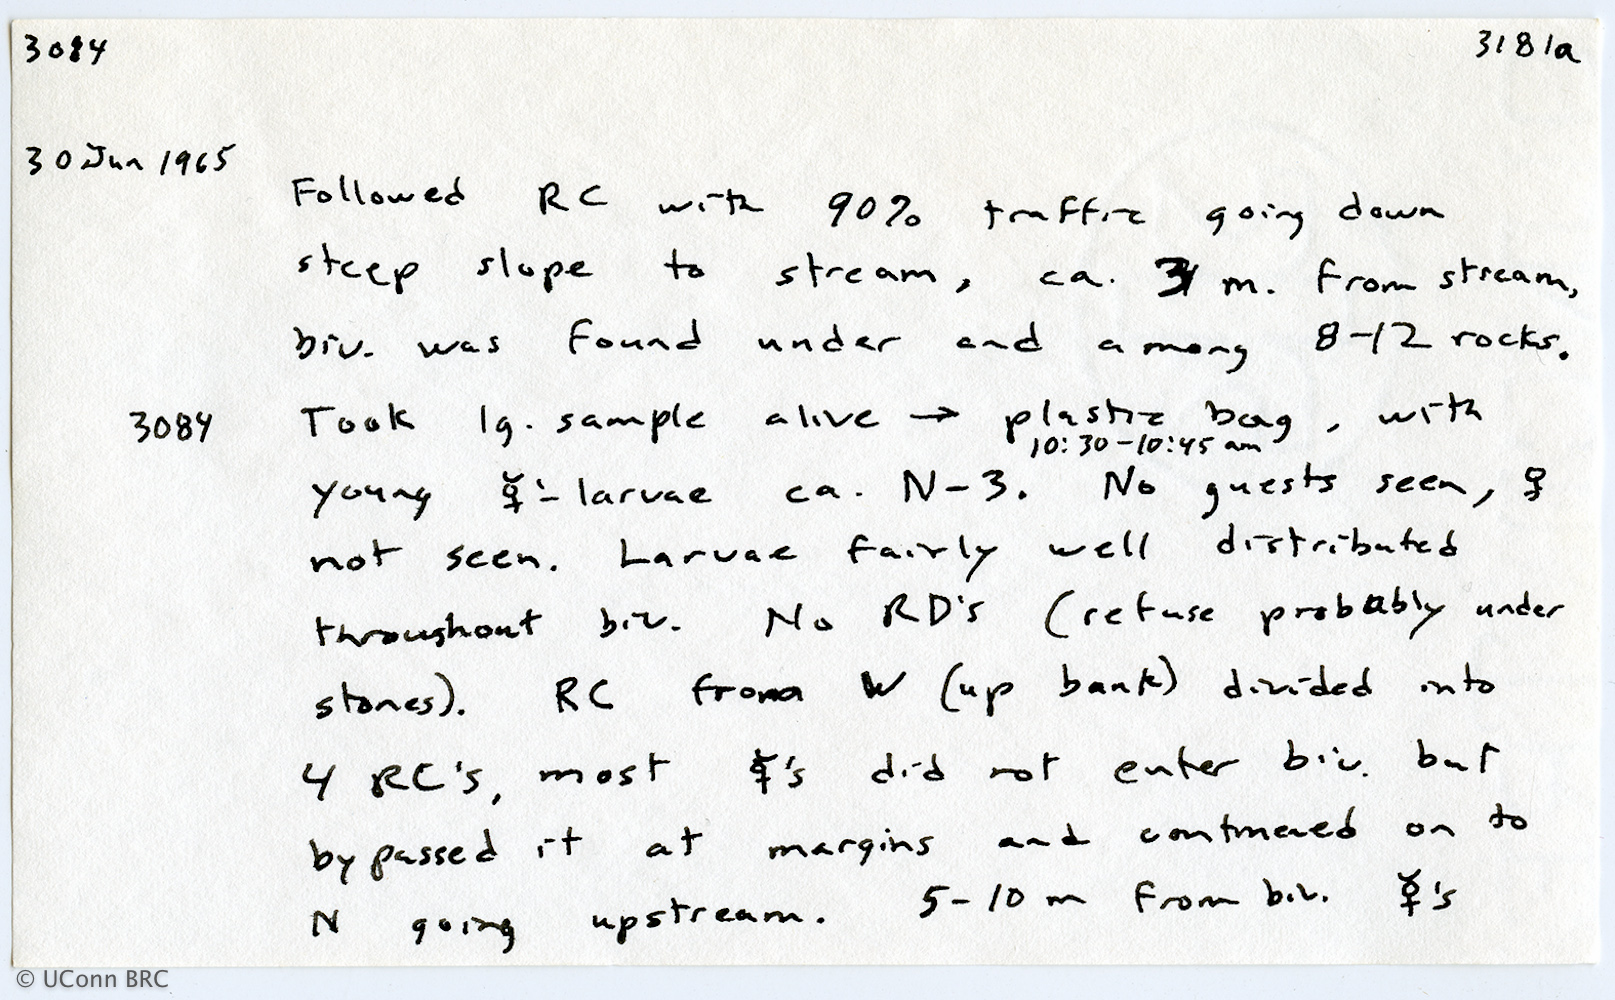 3084 3181a
30 Jun 1965
Followed RC with 90% traffic going down
steep slope to stream, ca. m. from stream,
biv. was found under and among 8-12 rocks.
3084 Took lg. sample alive → plastic bag, with
10:30-10:45 am
young ☿-larvae ca. N-3. No guests seen, ♀
not seen. Larvae fairly well distributed
throughout biv. No RD's (refuse probably under
stones). RC from W (up bank) divided into
4 RC's, most ☿'s did not enter biv. but
bypassed it at margins and continued on to
N going upstream. 5-10 m from biv. ☿'s
© UConn BRC